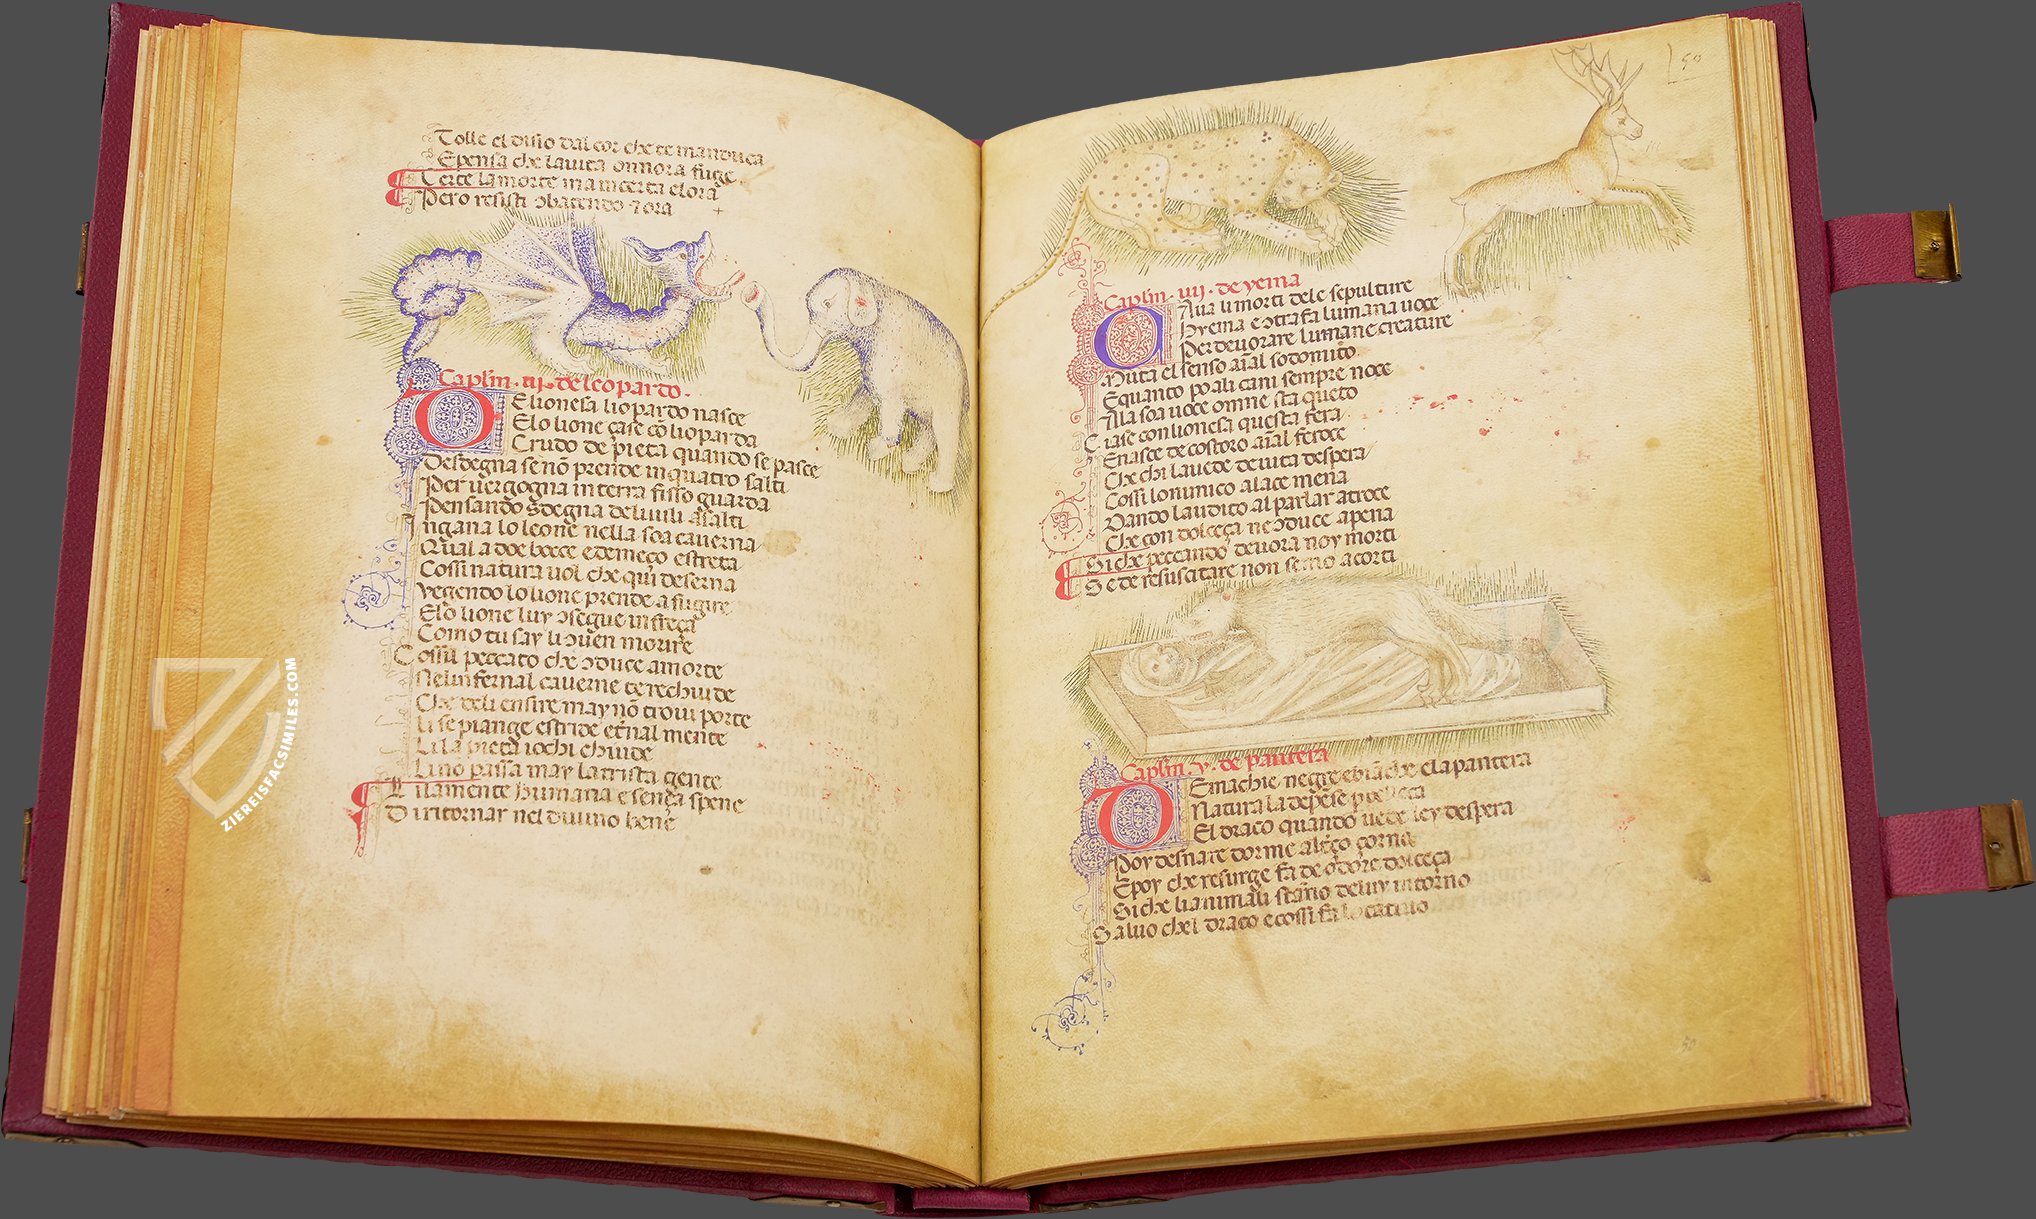 Tolle el disio dal cor che te manduca
E pensa che la vita onn ora fuge
Certe la morte ma incerta e lora
Pero resisti ɔbatendo ⁊ ora
Caplm. iii. de leopardo.
DE lionesa lio pardo nasce
E lo lione çase cõ lioparda
Crudo de pieta quando se pasce
Desdegna se nõ prende in quatro salti
Per vergogna in terra fisso guarda
Pensando
ngana lo leone nella soa caverna
Qual a doe bocce e demeço estreta
Cossi natura vol che qui deserna
Vegendo lo lione prende a fugire
E lo lione luy ɔsegue in freça
Como tu say li ɔuen morire
Cossi peccato che ɔduce a morte
Nel infernal caverne te rechiude
Che deli ensire may nõ trovi porte
li se piange e stride et̃nal mente
Li la pieta iochi chiude
Li no passa may la trista gente
mente humana e sença spene
Di ritornar nel divino bene
ZIEREISFACSIMILES.COM
L 50
Caplm. iiij. de yema
Cava li morti dele sepulture
Hyema e ɔtrafa lumana voce
Per devorare lumane creature
Muta el senso aĩal sodomito
E quanto po ali cani sempre noce
Alla soa voce omne sta queto
Ciase con lionesa questa fera
E nasce de costoro aĩal feroce
Che chi la vede de vita despera
Cossi lo nimico a la ce mena
Dando laudito al parlar atroce
Che con dolceça ne ɔduce a pena
Siche peccando devora noy morti
Se de resuscitare non semo acorti
Caplm. v. de pantera
DE machie negre e biãche e la pantera
Natura la depense
El draco quando vede ley despera
Poy desnare dorme al terço çorno
E poy che resurge fa de odore dolceça
Si che li animali stãno de luy intorno
Salvo chel draco e cossi fa lo cativo
50